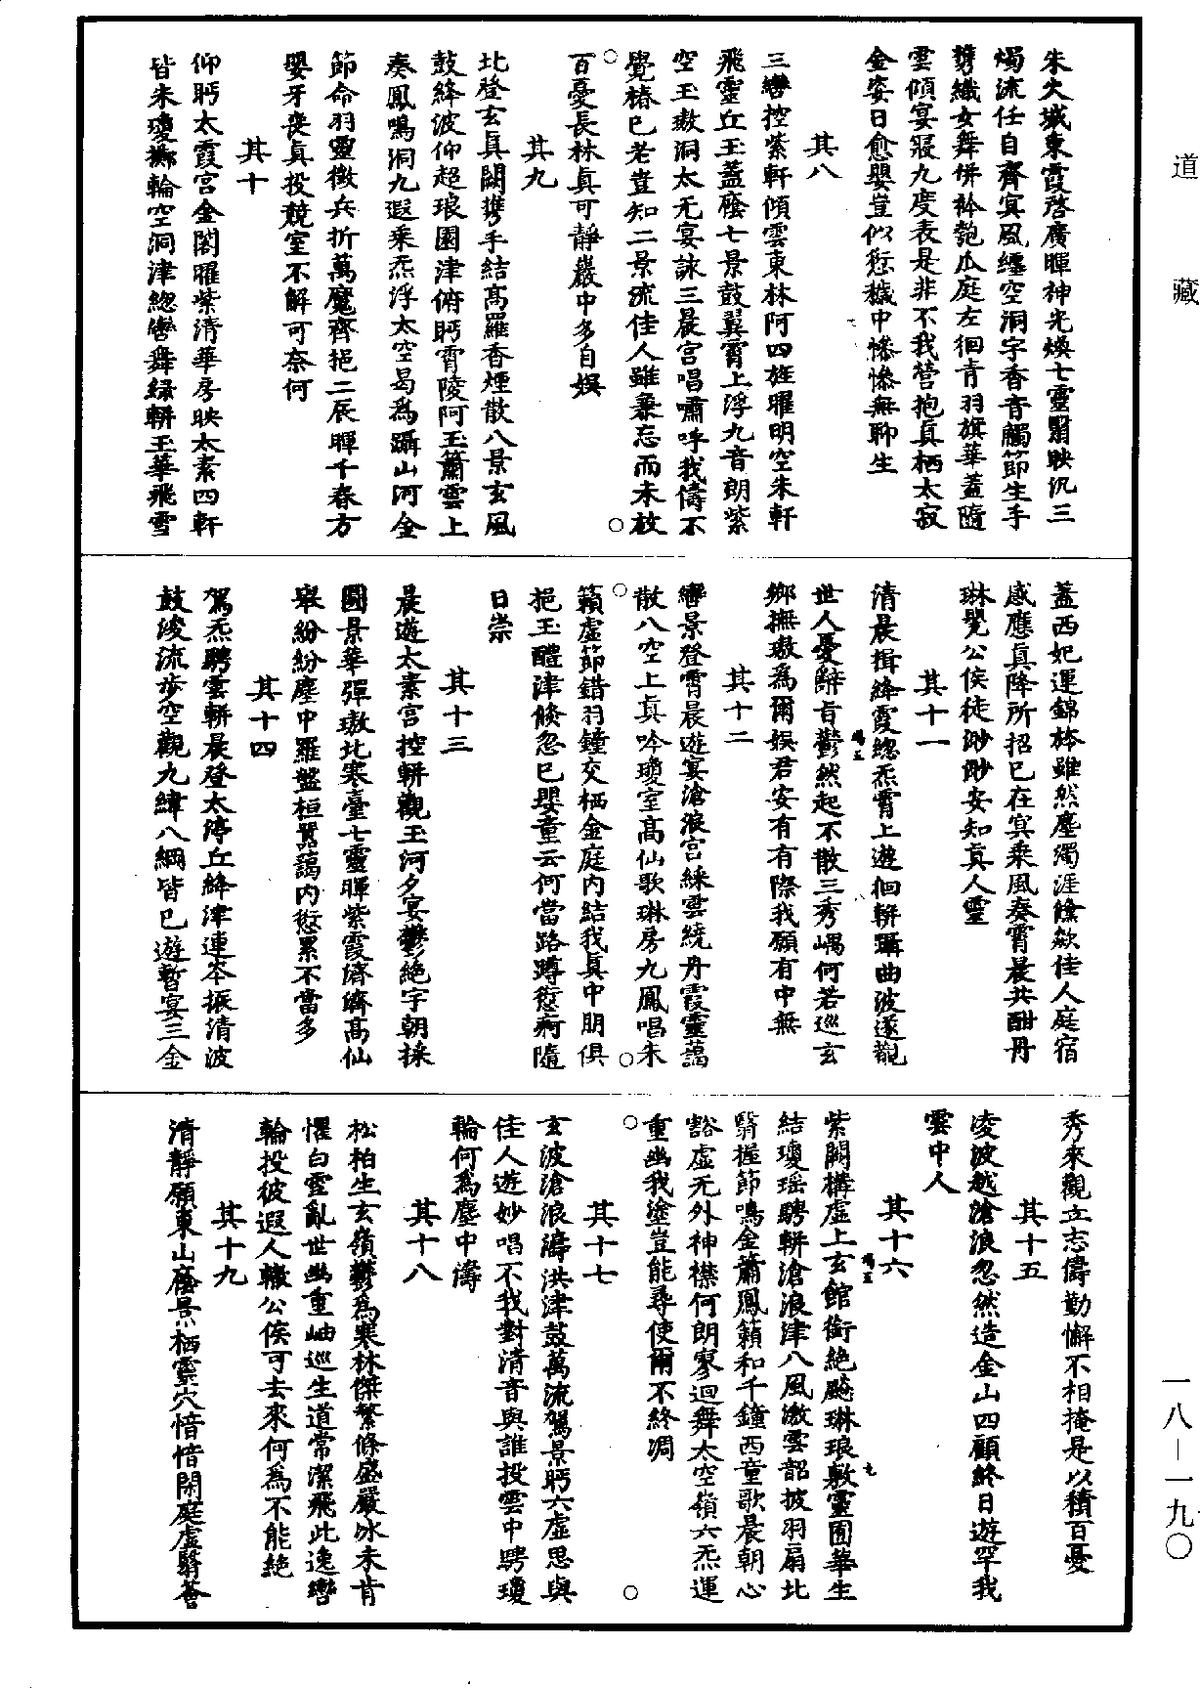 道藏
朱火城東霞啓廣暉神光煥七靈翳映汎三
燭流任自齊冥風纏空洞字香音觸節生手
攜織女舞併衿匏瓜庭左徊青羽旗華蓋隨
雲傾宴寢九度表是非不我營抱真栖太寂
金姿日愈嬰豈似愆穢中慘慘無聊生
其八
三轡控紫軒傾雲東林阿四旌曜明空朱軒
飛靈丘玉蓋廕七景鼓翼霄上浮九音朗紫
空玉璈洞太无宴詠三晨宮唱嘯呼我儔不
覺椿已老豈知二景流佳人雖兼忘而未放
百憂長林真可靜巖中多自娛
其九
北登玄真闕携手結高羅香煙散八景玄風
鼓絳波仰超琅園津俯眄霄陵阿玉簫雲上
奏鳳鳴洞九遐乘炁浮太空曷為躡山河金
節命羽靈徵兵折萬魔齊挹二辰暉千春方
嬰牙喪真投競室不解可奈何
其十
仰眄太霞宮金閣曜紫清華房映太素四軒
皆朱瓊擲輪空洞津緫轡舞綠軿玉華飛雪
蓋西妃運錦旍雖然塵濁涯儵欻佳人庭宿
感應真降所招已在冥乘風奏霄晨共酣丹
琳罌公侯徒眇眇安知真人靈
其十一
清晨揖絳霞緫炁霄上遊徊軿躡曲波遂觀
世人憂辭旨鬱然起不散三秀嵎何若巡玄
鄉撫璈為爾娛君安有有際我願有中無
其十二
轡景登霄晨遊宴滄浪宮綵雲繞丹霞靈藹
散八空上真吟瓊室高仙歌琳房九鳳唱朱
籟虛節錯羽鐘交栖金庭內結我真中朋俱
挹玉醴津倏忽已嬰童云何當路蹲愆痾隨
日崇
其十三
晨遊太素宮控軿觀玉河夕宴鬱絕宇朝採
圓景華彈璈北寒臺七靈暉紫霞濟濟高仙
舉紛紛塵中羅盤桓囂藹內愆累不當多
其十四
駕炁騁雲軿晨登太渟丘絳津連岑振清波
鼓浚流步空觀九緯八綱皆已遊暫宴三金
秀來觀立志儔勤懈不相掩是以積百憂
其十五
凌波越滄浪忽然造金山四顧終日遊罕我
雲中人
其十六
紫闕構虛上玄館衝絕飈琳琅敷靈囿華生
結瓊瑶騁軿滄浪津八風激雲韶披羽扇北
翳握節鳴金簫鳳籟和千鐘西童歌晨朝心
豁虛无外神襟何朗寥迴舞太空嶺六炁運
重幽我塗豈能尋使爾不終凋
其十七
玄波滄浪濤洪津鼓萬流駕景眄六虛思與
佳人遊妙唱不我對清音與誰投雲中騁瓊
輪何為塵中濤
其十八
松柏生玄嶺鬱為寒林傑繁條盛嚴冰未肯
懼白雪亂世幽重岫巡生道常潔飛此逸轡
輪投彼遐人轍公侯可去來何為不能絕
其十九
清靜願東山廕景栖靈穴愔愔閑庭虛翳薈
一八—一九〇